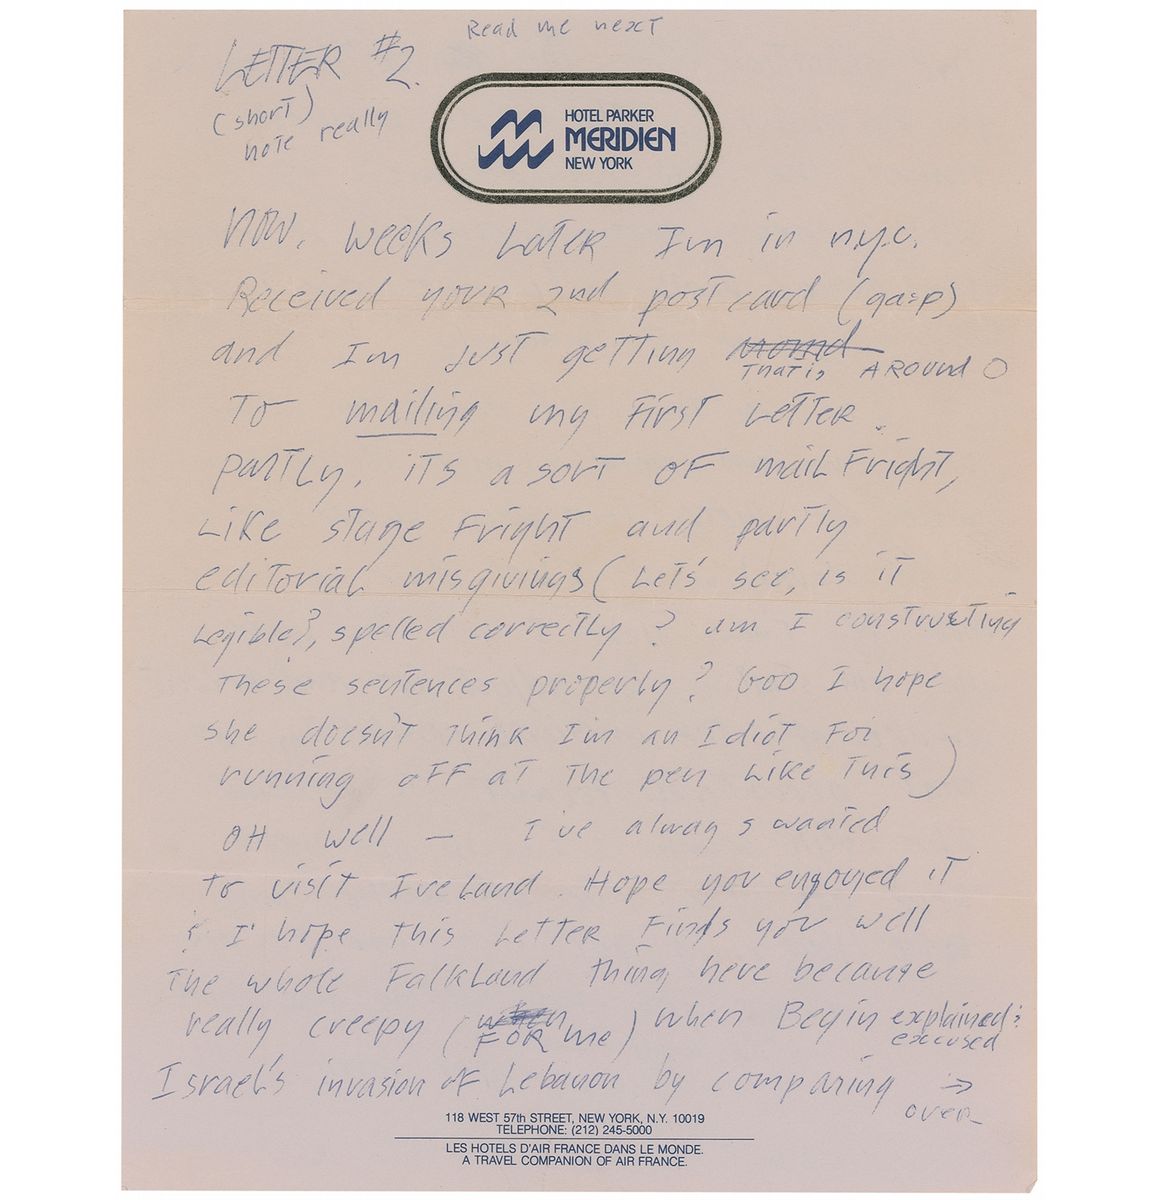 Read me next
LETTER #2.
(short)
note really
HOTEL PARKER
MERIDIEN
NEW YORK
NOW, weeks Later I'm in n.y.c.
Received your 2nd post card (gasp)
and Im just getting
That is AROUND
To mailing my First Letter.
partly, iTs a sort of mail Fright,
Like stage Fright and partly
editorial misgivings (Let's see, is it
Legible?, spelled correctly? am I constructing
These sentences properly? God I hope
she doesn't Think I'm an Idiot For
running off at The pen Like This)
OH well — I've always wanted
To visit Ireland. Hope you enjoyed it
& I hope this Letter Finds you well
The whole Falkland thing here became
really creepy (FOR me) when Begin explained &
excused
Israel's invasion of Lebanon by comparing →
over
118 WEST 57th STREET, NEW YORK, N.Y. 10019
TELEPHONE: (212) 245-5000
LES HOTELS D'AIR FRANCE DANS LE MONDE.
A TRAVEL COMPANION OF AIR FRANCE.